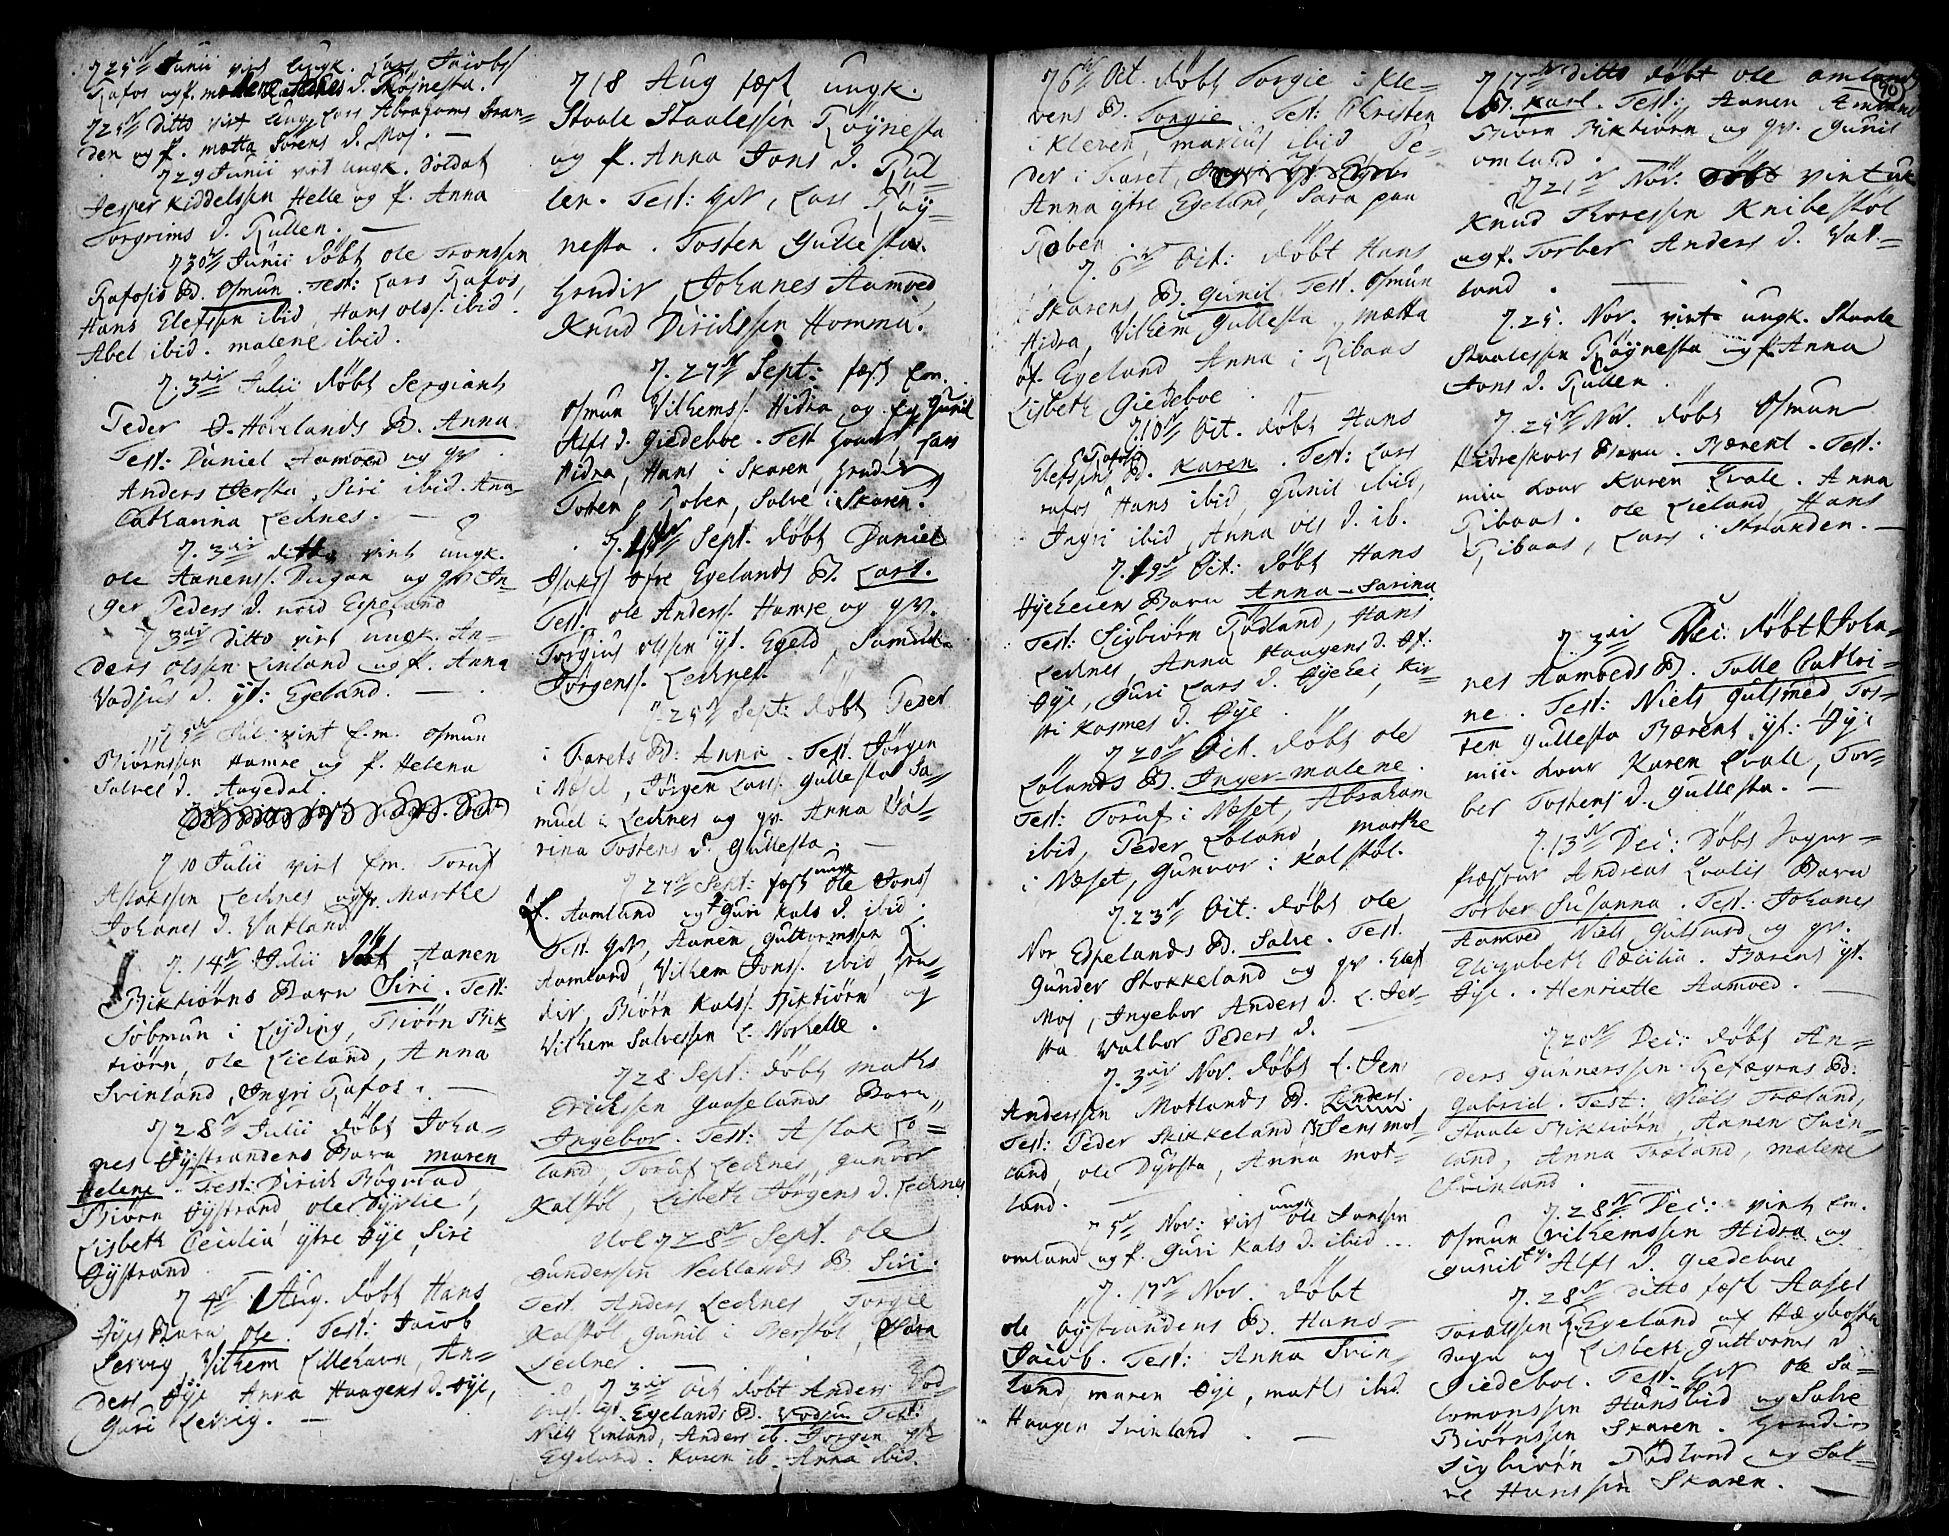 7 25de Junii vint Ungk. Lars Jacobs
Rafos og f. Røjnesta.
7 25de ditto vint Ungk. Lars Abrahams Stran-
den og f. mætta Sørens d. Moj. —
7 29 Junii vint ungk. Soldat
Jesper Kiddelssen Helle og f. Anna
Torgrims d. Rullen. —
7 30te Junii døbt ole Tronssen
Rafosis B. Osmun. Test: Lars Rafos,
Hans Elefssen ibid, Hans olss. ibid.
Abel ibid. malene ibid.
7. 3die Julii døbt Sergiant
Peder Hovelands B. Anna
Test: Daniel Aamoed og qv.
Anders Jersta, Siri ibid. Ana-
Catharina Lecknes. —
7. 3die ditto vint ungk.
ole Aanenss. Dugan og qv. In-
ger Peders d. nord Espeland
7 3die ditto vint ungk. An-
ders olssen Linland og f. Anna
Vadsius d. yt: Egeland. —
7 5te Jul: vint E.m. osmun
Biørnssen Hamre og f. Helena
Salves d. Aagedal.
7 10 Julii vint Em. Toruf
Aslakssen Lecknes og f. Marthe
Johanes d. Vatland
7. 14de Julii døbt Aanen
Biktiørns Barn Siri. Test:
Tobmun i Lyding, Biørn Bik-
tiørn, ole Lieland, Anna
Svinland, Ingri Rafos. —
7 28de Julii døbt Joha-
nes Øystrandens Barn maren
Helene. Test: Dirich Bøgwad
Biørn Øystrand, ole Dyrlie,
Lisbeth Cecilia ytre Øye, Siri
Øystrand
7 4de Aug. døbt Hans
Øyes Barn ole. Test: Jacob
Lervig, Vilhem Lillehavn, An-
ders Øye Anna Haagens d. Øye,
Guri Lervig. —
7 18 Aug fæst ungk.
Staale Staalessen Røynesta
og f. Anna Jons d. Rul-
len. Test: qv, Lars Røy-
nesta. Tosten Gullesta
Hendrik, Johanes Aamoed,
Knud Dirickssen Homma.
7. 27de Sept: fæst Em.
Osmun Vilhemss. Hidra og Gunil
Alfs d. Giedeboe. Test Lars
Hidra, Hans i Skaren,
Tosten Roben, Salve i Skaren.
7. Sept. døbt Daniel
Isakss øfre Egelands B. Lars.
Test: ole Anderss. Hamre og qv.
Torgius olssen yt. Egeld, Samuel
Jørgenss. Lecknes.
7. 25de Sept: døbt Peder
i Farets B: Anna. Test. Jørgen
i Næset, Jørgen Larss. Gullesta Sa-
muel i Lecknes og qv. Anna Ka-
rina Tostens d. Gullesta. —
7 27de Sept: fæst ungk ole Jonss
L. Aamland og f Guri Kals d. ibid.
Test qv, Aanen Guttormssen L.
Aamland, Vilhem Jonss. ibid
Biørn Kalss. Biktiørn og
Vilhem Salvessen L. Norhelle.
7 28 Sept: døbt Maths
Erickssen Gaaselands Barn
Ingebor. Test: Aslak Lo-
land, Toruf Lecknes, Gunvor
Kalstøl, Lisbeth Jørgens d. Lecknes
7 28de Sept. ole
Gunderssen Necklands B Siri.
Test. Anders Lecknes Torgie
Kalstøl, Gunil i Berstøl, Sara
Lecknes. —
7 3die Oct døbt Anders Vad-
Egelands B. Vadsiu Test:
Niels Linland, Anders ib. Jørgen yt:
Egeland. Karen ib. Anna ibid.
7 6te Oct. døbt Torgie i Kle-
vens B. Torgie. Test: Christen
i Kleven, marius ibid Pe-
der i Faret,
Anna ytre Egeland, Sara paa
Roben.
7. 6te Oct: døbt Hans
Skarens B. Gunil Test. Osmun
Hidra, Vilhem Gullesta, mætta
øf. Egeland Anna i Ribaas
Lisbeth Giedeboe
7.10de Oct. døbt Hans
Elefssens Rafos B. Karen. Test: Lars
rafos Hans ibid, Gunil ibid,
Ingri ibid, Anna ols d. ib.
7. 19de Oct: døbt Hans
Øyeheiens Barn Anna-Sarina
Test: Sigbiørn Rødland, Hans
Lecknes, Anna Haagens d. øf.
Øye, Guri Lars d. Øyehei, Kir-
sti Rasmes d. Øye.
7 20de Oct. døbt ole
Lolands B. Inger-malene.
Test: Toruf i Næset, Abraham
ibid, Peder Loland, marthe
i Næset, Gunvor i Kalstøl.
7. 23de Oct: døbt ole
Nor Espelands B. Salve. Test.
Gunder Stokkeland og qv. Elef
Moj, Ingebor Anders d. L. Jer-
sta Valbor Peders d. —
7. 3die Nov. døbt L. Jens
Anderssen Motlands B. Anders.
Test: Peder Skikkeland Jens mot-
land, ole Dyrsta, Anna mot-
land.
7 5te Nov: vint ungk ole Jonssen
omland og f. Guri Kals d. ibid...
7. 17de Nov. døbt
ole Øystrandens B. Hans-
Jacob. Test: Anna Svin-
land, maren Øye, maths ibid
Haagen Svinland. —
90
7 17de ditto døbt ole omlands
B. Karl. Test: Aanen Amland
Biørn Biktiørn og qv. Gunil
omland.
7 21de Nov. vint uk
Knud Thoressen Knibestøl
og f. Torber Anders d. Vat-
land. —
7. 25. Nov. vint ungk. Staale
Staalessen Røynesta og f. Anna
Jons d. Rullen.
7. 25de Nov. døbt Osmun
Hidreskovs Barn. Bærent. Test:
min kone Karen Lvale. Anna
Ribaas. ole Lieland, Hans
Ribaas, Lars i Stranden. —
7. 3die Dec: døbt Joha-
nes Aamoeds B. Talle Cathri-
ne. Test: Niels Gulsmed Tos-
ten Gullesta Bærent yt: Øye
min kone Karen Lvale, Tor-
ber Tostens d. Gullesta. —
7. 13de Dec: døbt Sogne-
Præsten Andreas Lvalis Barn
Torber Susanna. Test: Johanes
Aamoed Niels Gulsmed og qv.
Elizabeth Cæcilia. Bærent yt.
Øye. Henriette Aamoed. —
7 20de Dec: døbt An-
ders Gunnerssen Refægens B:
Gabriel. Test: Niels Træland,
Staale Biktiørn, Aanen Svin-
land, Anna Træland, malene
Svinland.
7. 28de Dec: vint Em.
Osmun Vilhemssen Hidra og
Gunil Alfs d. Giedeboe
7. 28de ditto fæst Assel
Toralssen Egeland af Hægbosta
Sogn og Lisbeth Guttorms d
Giedeboe. Test: qv ole Sa-
lomonssen Hunsbid og Salve
Biørnssen Skaren.
Sigbiørn Rødland og Sal-
ve Hanssen Skaren. —